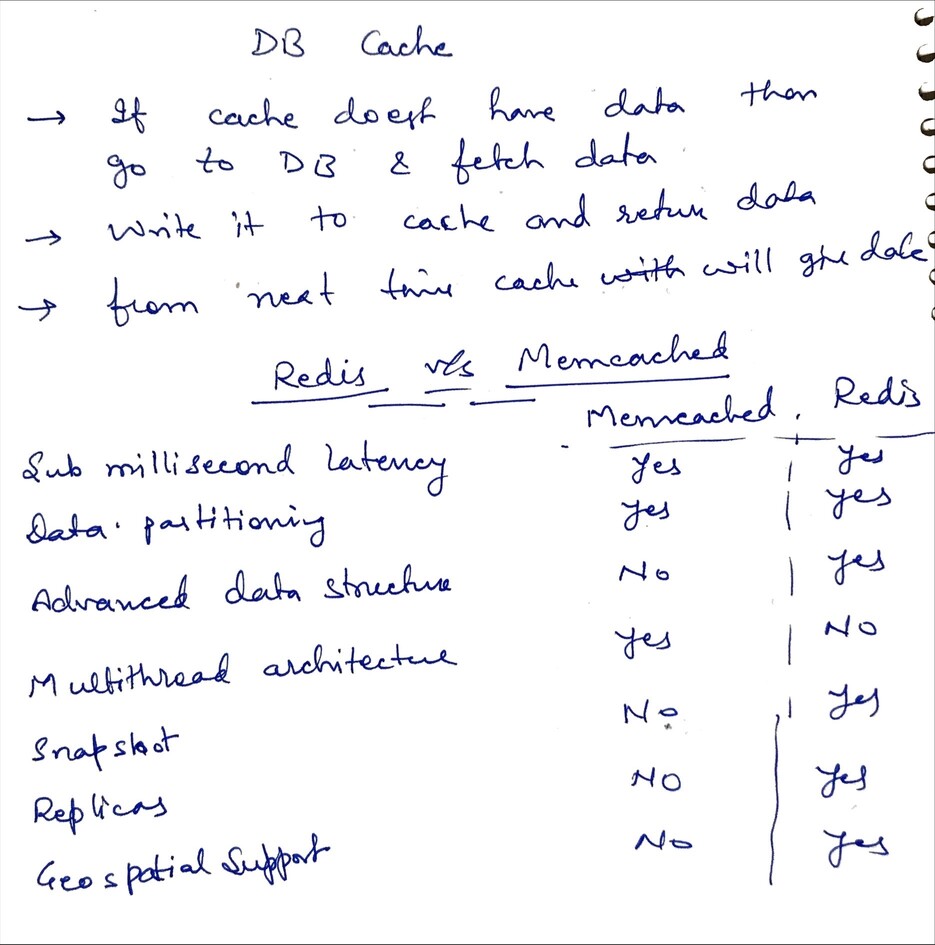 DB Cache
→ If cache doesn't have data then
go to DB & fetch data
→ Write it to cache and return data
→ from next time cache with will give data
Redis v/s Memcached
Memcached Redis
Sub millisecond Latency Yes Yes
Data partitioning Yes Yes
Advanced data structure No Yes
Multithread architecture Yes No
Snapshot No Yes
Replicas No Yes
Geospatial Support No Yes